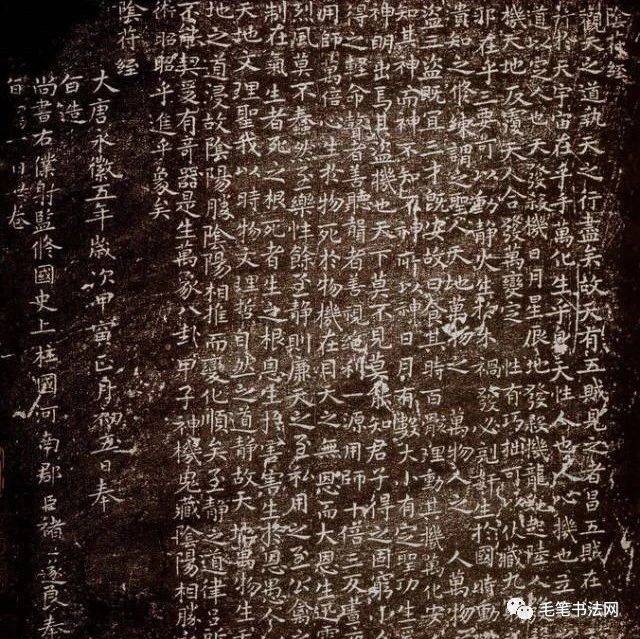 陰符經
觀天之道執天之行盡矣故天有五賊見之者昌五賊在
行於天宇宙在乎手萬化生乎身天性人也人心機也立
道以定人也天發殺機日月星辰地發殺機龍蛇起陸人
機天地反覆天人合發萬變之性有巧拙可以伏藏九
邪在乎三要可以動靜火生於木禍發必剋奸生於國時動
貴知之修練謂之聖人天地萬物之萬物人之人萬物
盜三盜既宜三才既安故曰食其時百骸理動其機萬化安
知其神而神不知不神所以神日月有數大小有定聖功生
神明出焉其盜機也天下莫不見莫能知君子得之固窮小人
得之輕命瞽者善聽聾者善視絕利一源用師十倍三反晝夜
用師萬倍心生於物死於物機在目天之無恩而大恩生迅雷
烈風莫不蠢然至樂性餘至靜則廉天之至私用之至公禽之
制在氣生者死之根死者生之根恩生於害害生於恩愚人
天地文理聖我以時物文理哲自然之道靜故天地萬物生天
地之道浸故陰陽勝陰陽相推而變化順矣至靜之道律呂所
不能契爰有奇器是生萬象八卦甲子神機鬼藏陰陽相勝之
術昭昭乎進乎象矣
陰符經
大唐永徽五年歲次甲寅正月初五日奉
旨造
尚書右僕射監修國史上柱國河南郡臣褚遂良奉
旨
毛笔书法网